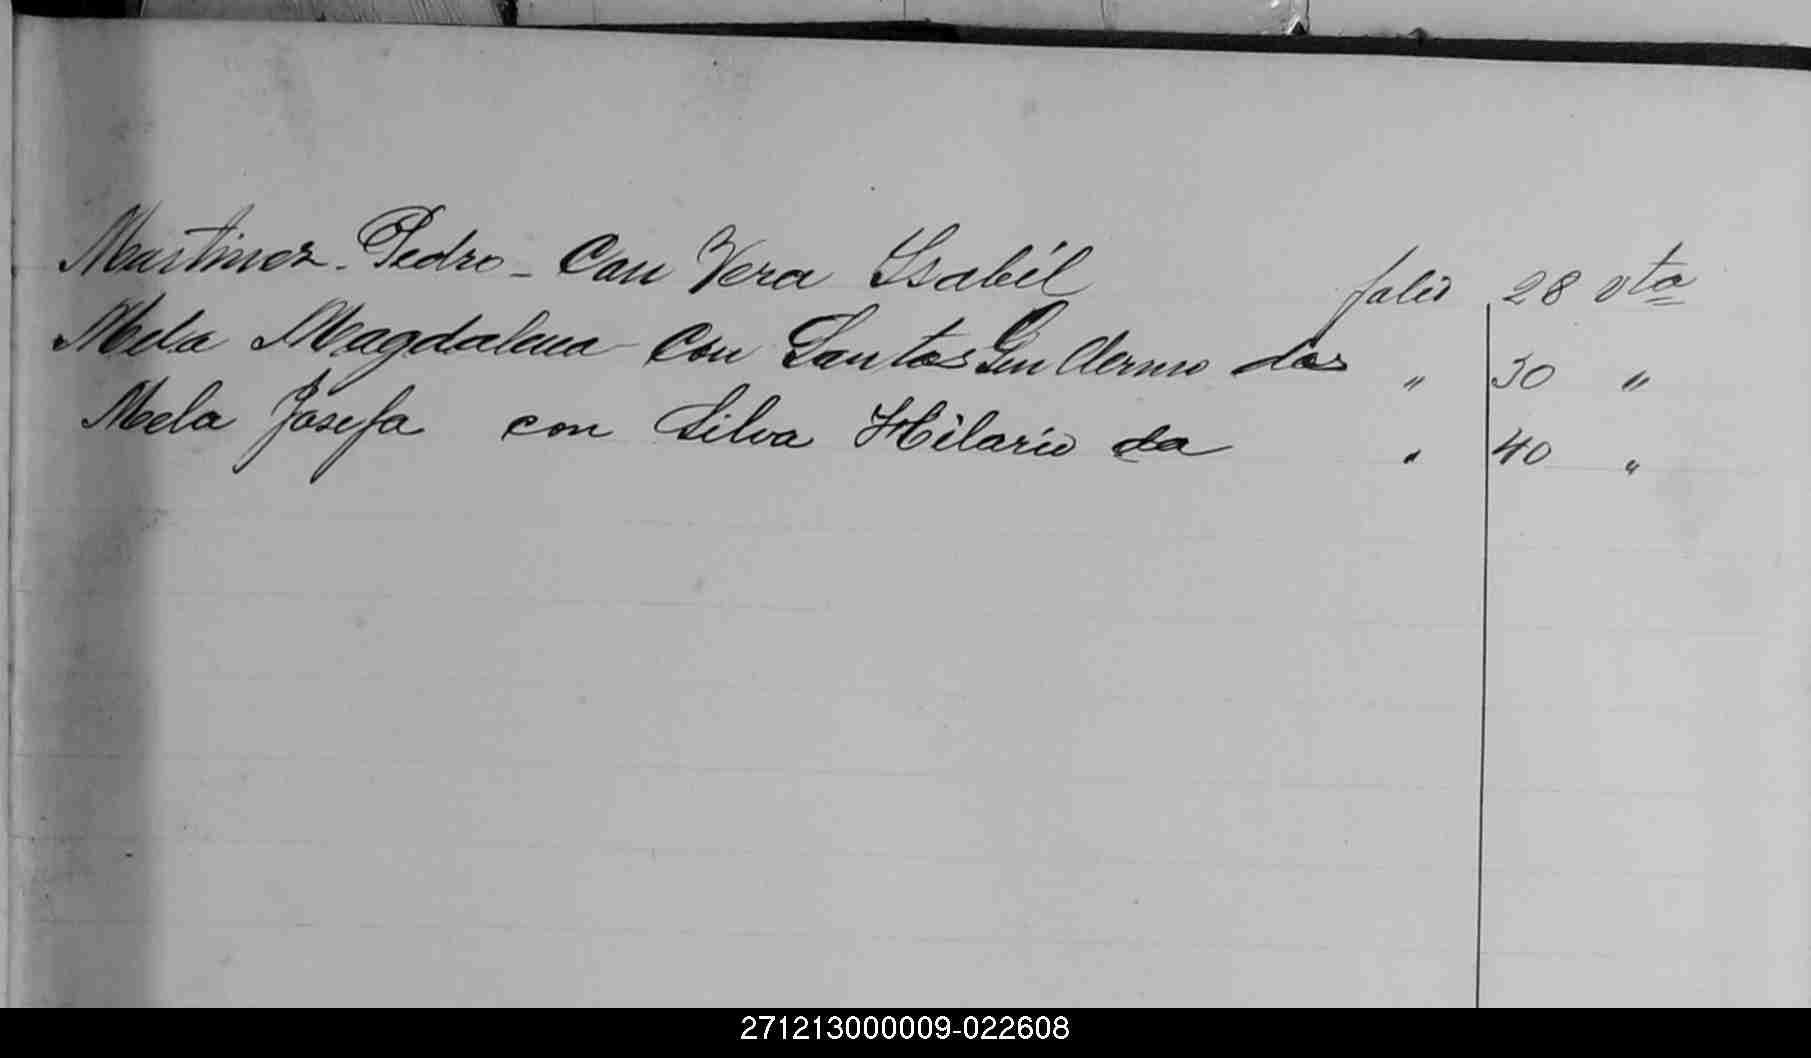 Martinez - Pedro - Con Vera Isabél folio 28 vta
Mela Magdalena con Santos Guillermo dos " 30 "
Mela Josefa con Silva Hilario da " 40 "
271213000009-022608